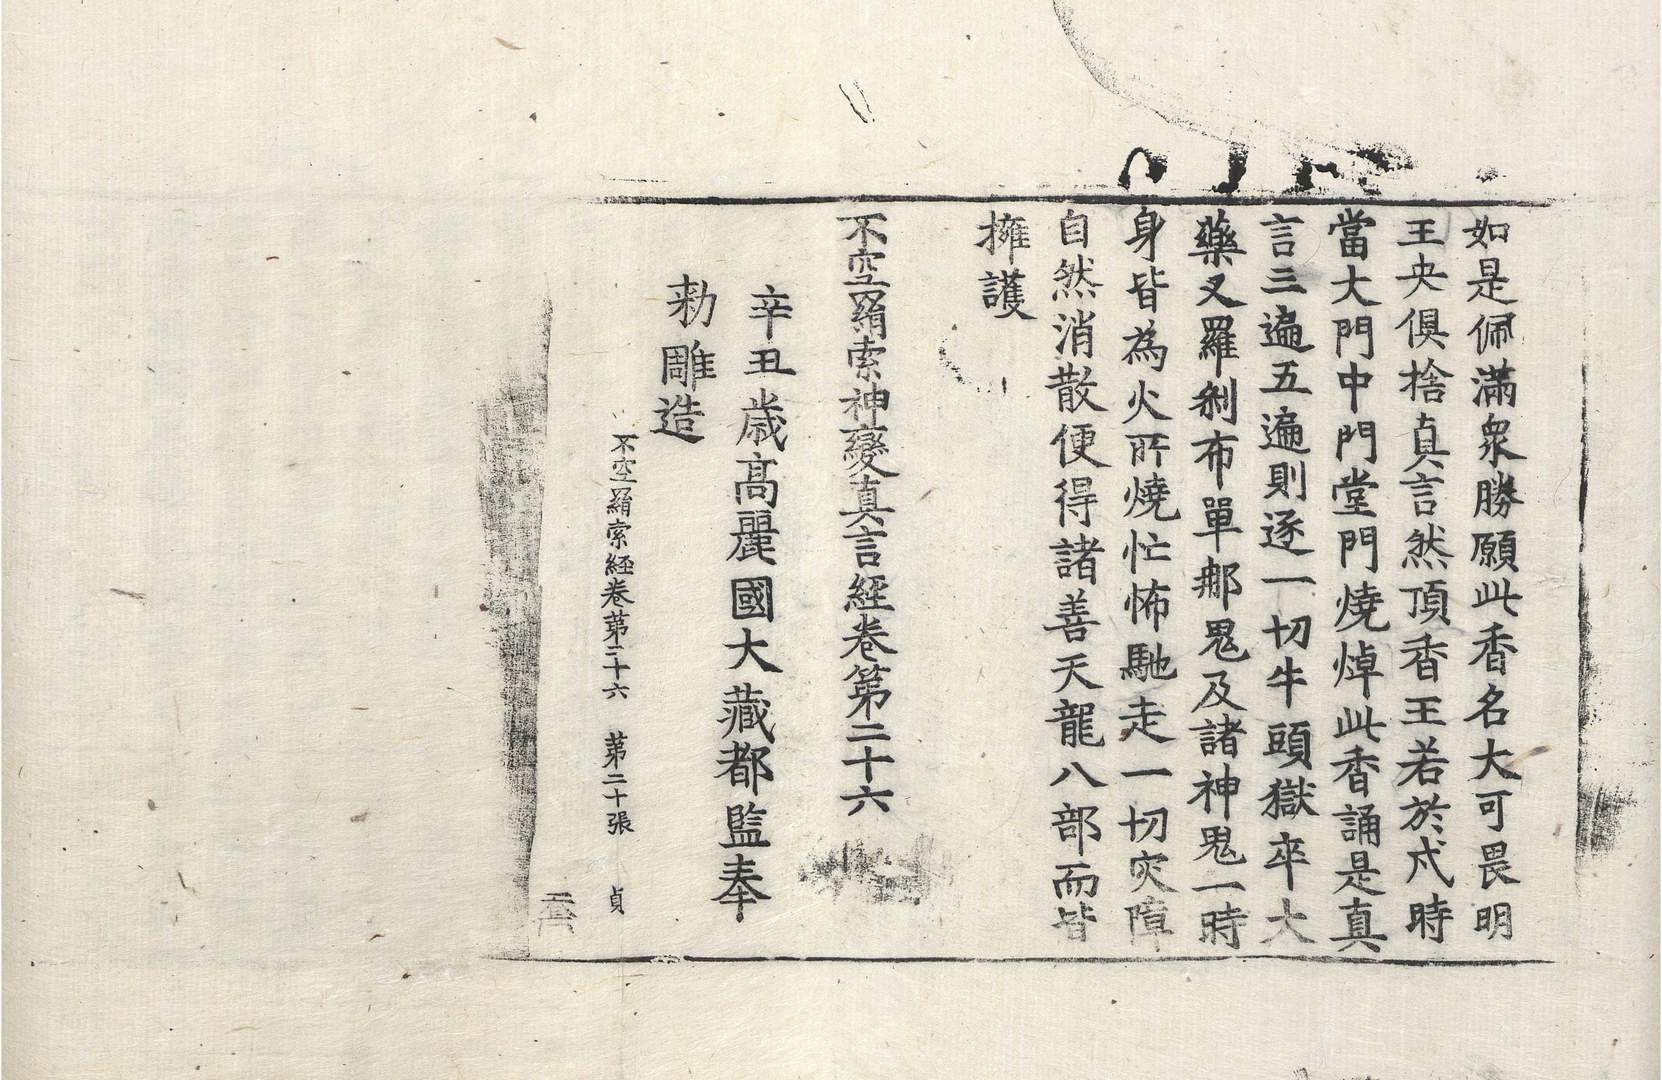 如是佩滿衆勝願此香名大可畏明
王央俱捨真言然頂香王若於戌時
當大門中門堂門燒焯此香誦是真
言三遍五遍則逐一切牛頭獄卒大
藥叉羅剎布單那鬼及諸神鬼一時
身皆為火所燒忙怖馳走一切灾障
自然消散便得諸善天龍八部而皆
擁護
不空羂索神變真言經卷第二十六
辛丑歲高麗國大藏都監奉
勅雕造
不空羂索經卷第二十六 第二十張 貞